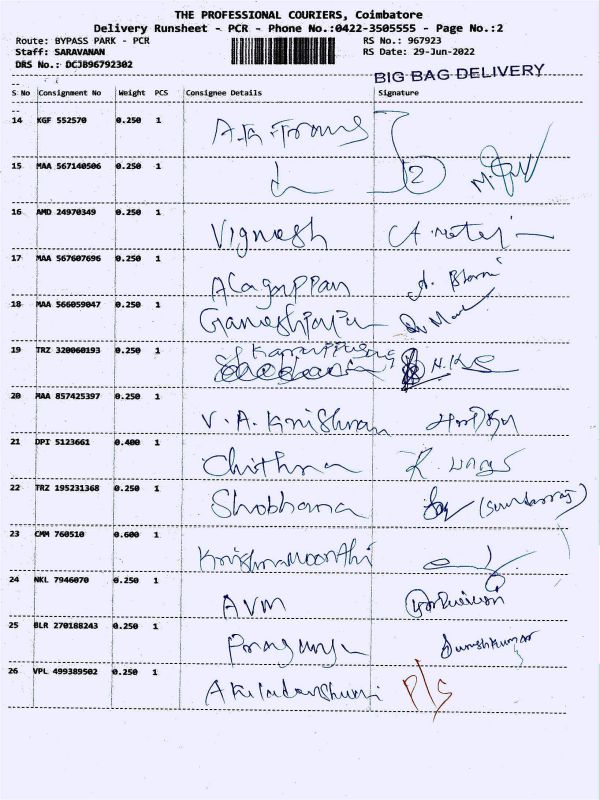 THE PROFESSIONAL COURIERS, Coimbatore
Delivery Runsheet - PCR - Phone No.:0422-3505555 - Page No.:2
Route: BYPASS PARK - PCR RS No.: 967923
Staff: SARAVANAN RS Date: 29-Jun-2022
DRS No.: DCJB96792302
BIG BAG DELIVERY
S No Consignment No Weight PCS Consignee Details Signature
14 KGF 552570 0.250 1
15 MAA 567140506 0.250 1 2
16 AMD 24970349 0.250 1 Vignesh
17 MAA 567607696 0.250 1 Alagappan
18 MAA 566059047 0.250 1
19 TRZ 320060193 0.250 1
20 MAA 857425397 0.250 1 V.A. Krishnan
21 DPI 5123661 0.400 1 Chithra
22 TRZ 195231368 0.250 1 Shobhana
23 CMM 760510 0.600 1 Krishnamoorthi
24 NKL 7946070 0.250 1 AVM
25 BLR 270188243 0.250 1 Sureshkumar
26 VPL 499389502 0.250 1 P/S